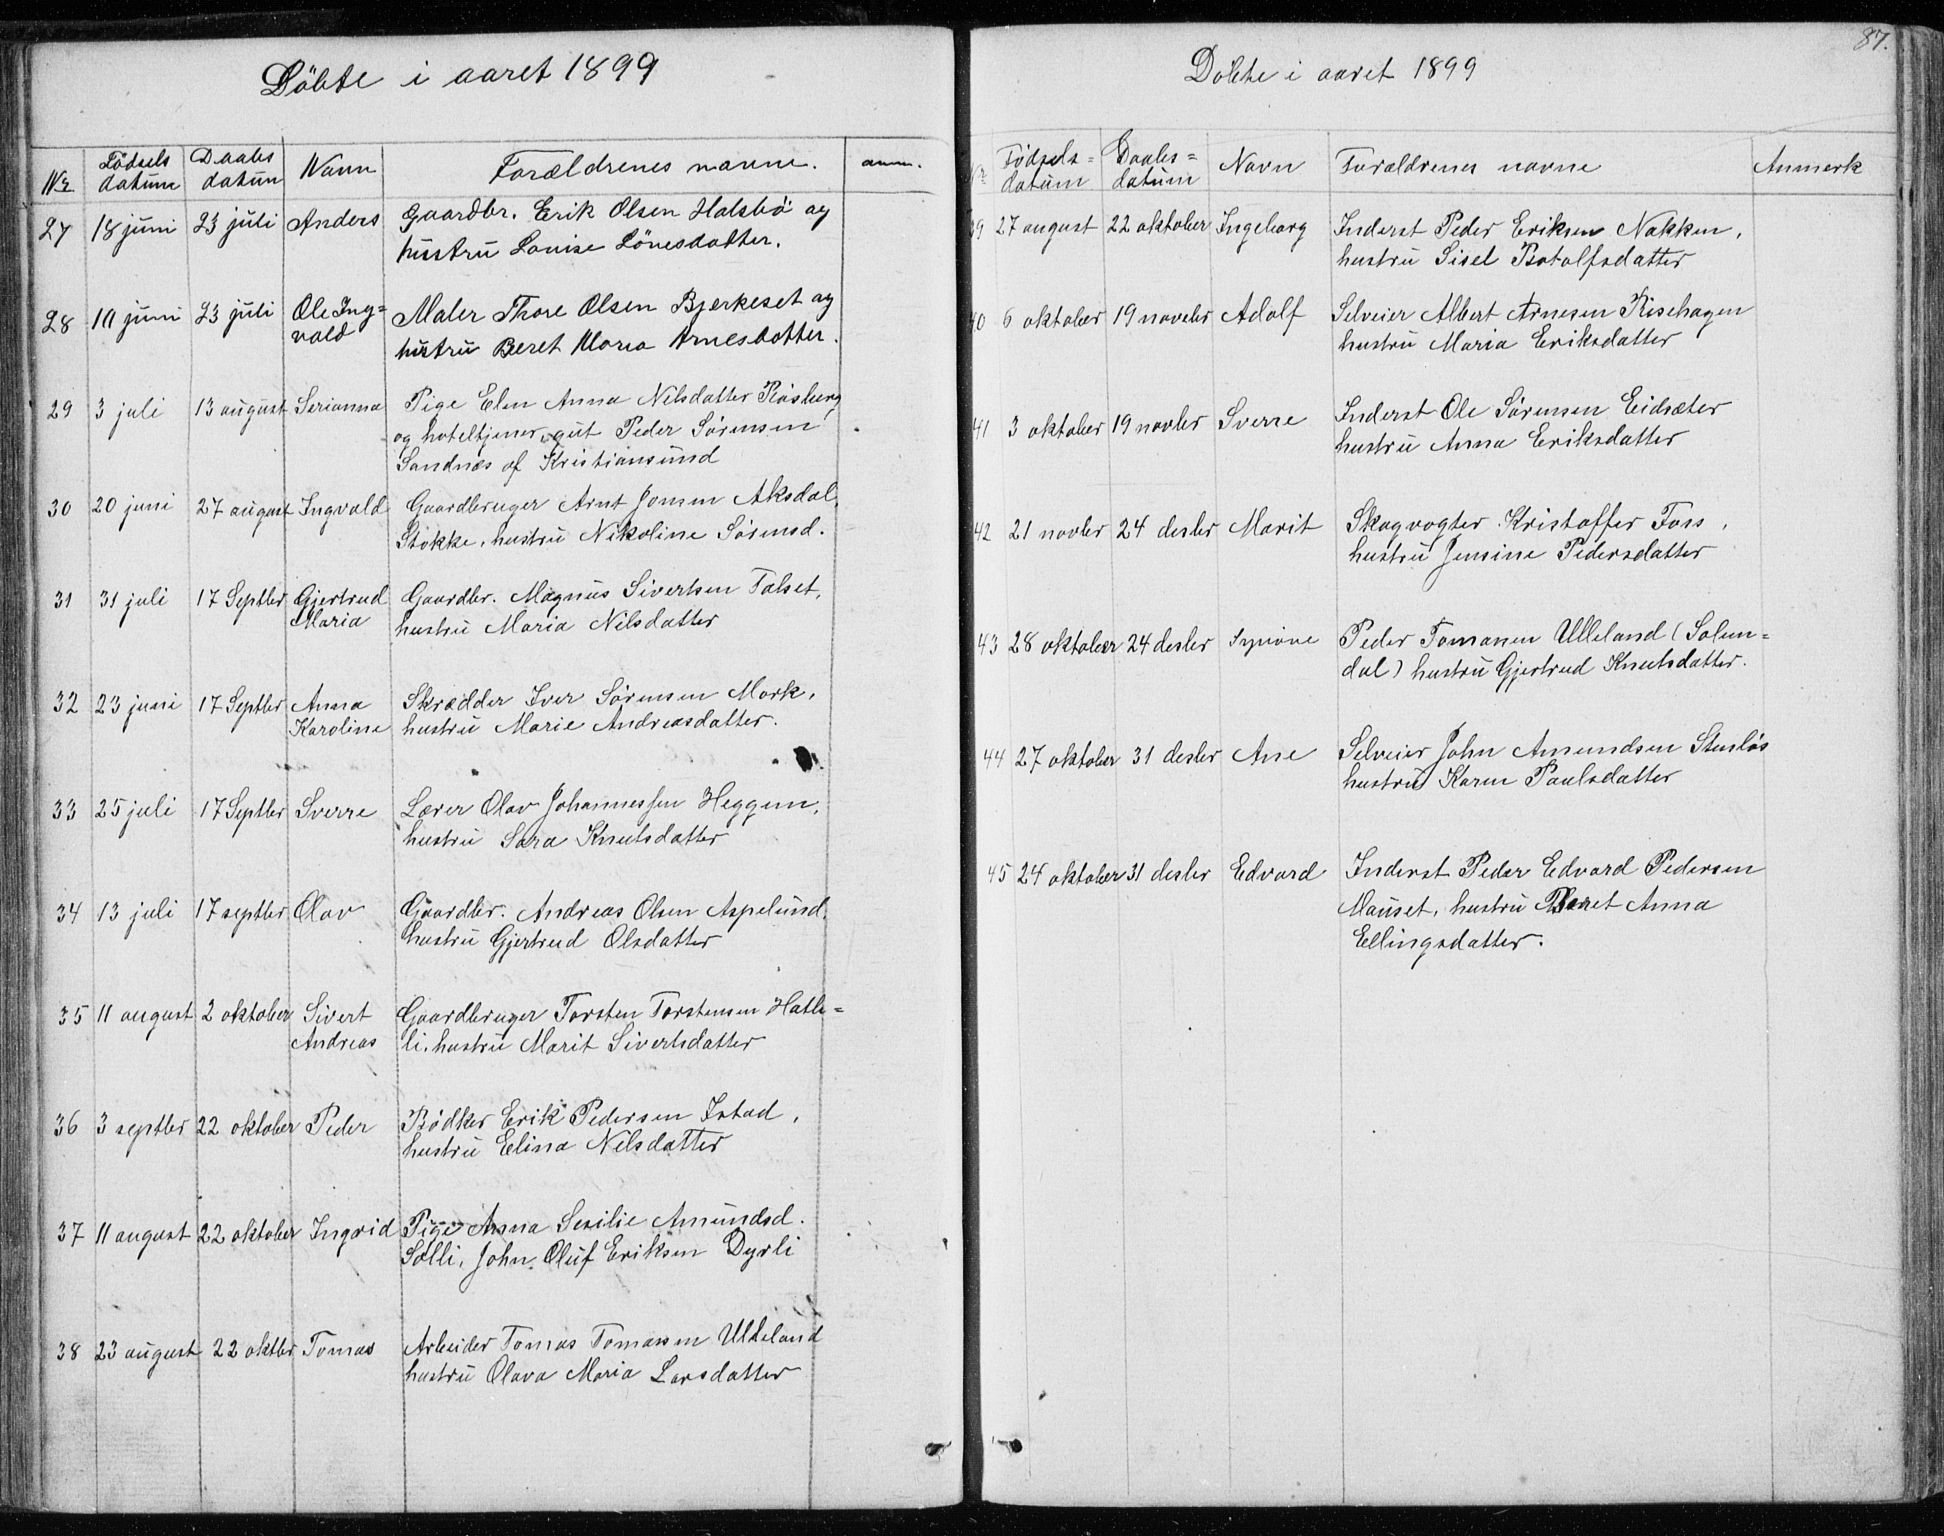 Döbte i aaret 1899
Nr Födsels datum Daabs datum Navn Forældrenes navne. anm.
27 18 juni 23 juli Anders Gaardbr. Erik Olsen Halsbö og
hustru Louise Lönesdatter.
28 10 juni 23 juli Ole Ing= Maler Thore Olsen Bjerkeset og
vald hustru Beret Maria Arnesdatter.
29 3 juli 13 august Serianna Pige Elen Anna Nilsdatter Røsberg
og hoteltjener, gut Peder Sörensen
Sandnæs af Kristiansund
30 20 juni 27 august Ingvald Gaardbruger Arnt Jonsen Aksdal,
Stokke, hustru Nikoline Sörensd.
31 31 juli 17 Septbr Gjertrud Gaardbr. Magnus Sivertsen Talset,
Maria hustru Maria Nilsdatter
32 23 juni 17 Septbr Anna Skrædder Iver Sörensen Mork,
Karoline hustru Marie Andreasdatter.
33 25 juli 17 Septbr Sverre Lærer Olav Johannessen Heggem,
hustru Sara Knutsdatter
34 13 juli 17 septbr Olav Gaardbr. Andreas Olsen Aspelund,
hustru Gjertrud Olsdatter
35 11 august 2 oktober Sivert Gaardbruger Torsten Torstensen Hatle=
Andreas li, hustru Marit Sivertsdatter
36 3 septbr 22 oktober Peder Bödker Erik Pedersen Istad,
hustru Elina Nilsdatter
37 11 august 22 oktober Ingrid Pige Anna Sesilie Amundsd.
Solli, John Oluf Eriksen Dyrli
38 23 august 22 oktbr Tomas Arbeider Tomas Tomassen Ulleland
hustru Olava Maria Larsdatter
87.
Dobte i aaret 1899
Nr Födsels= datum Daabs= datum Navn Foraldrenes navne Anmerk
39 27 august 22 oktober Ingeborg Inderst Peder Eriksen Nakken,
hustru Sisel Botolfsdatter
40 6 oktober 19 novebr Adolf Selveier Albert Arnesen Risehagen
hustru Maria Eriksdatter
41 3 oktober 19 novbr Sverre Inderst Ole Sörensen Eidsæter
hustru Anna Eriksdatter
42 21 novbr 24 desbr Marit Skogvogter Kristoffer Foss,
hustru Jensine Pedersdatter
43 28 oktober 24 desbr Synöve Peder Tomassen Ulleland (Solem=
dal) hustru Gjertrud Knutsdatter.
44 27 oktober 31 desbr Ane Selveier John Amundsen Stusløs
hustru Karen Paulsdatter
45 24 oktober 31 desbr Edvard Inderst Peder Edvard Pedersen
Mauset, hustru Beret Anna
Ellingsdatter.